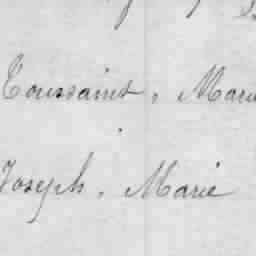 Toussaint, Marie
Joseph, Marie